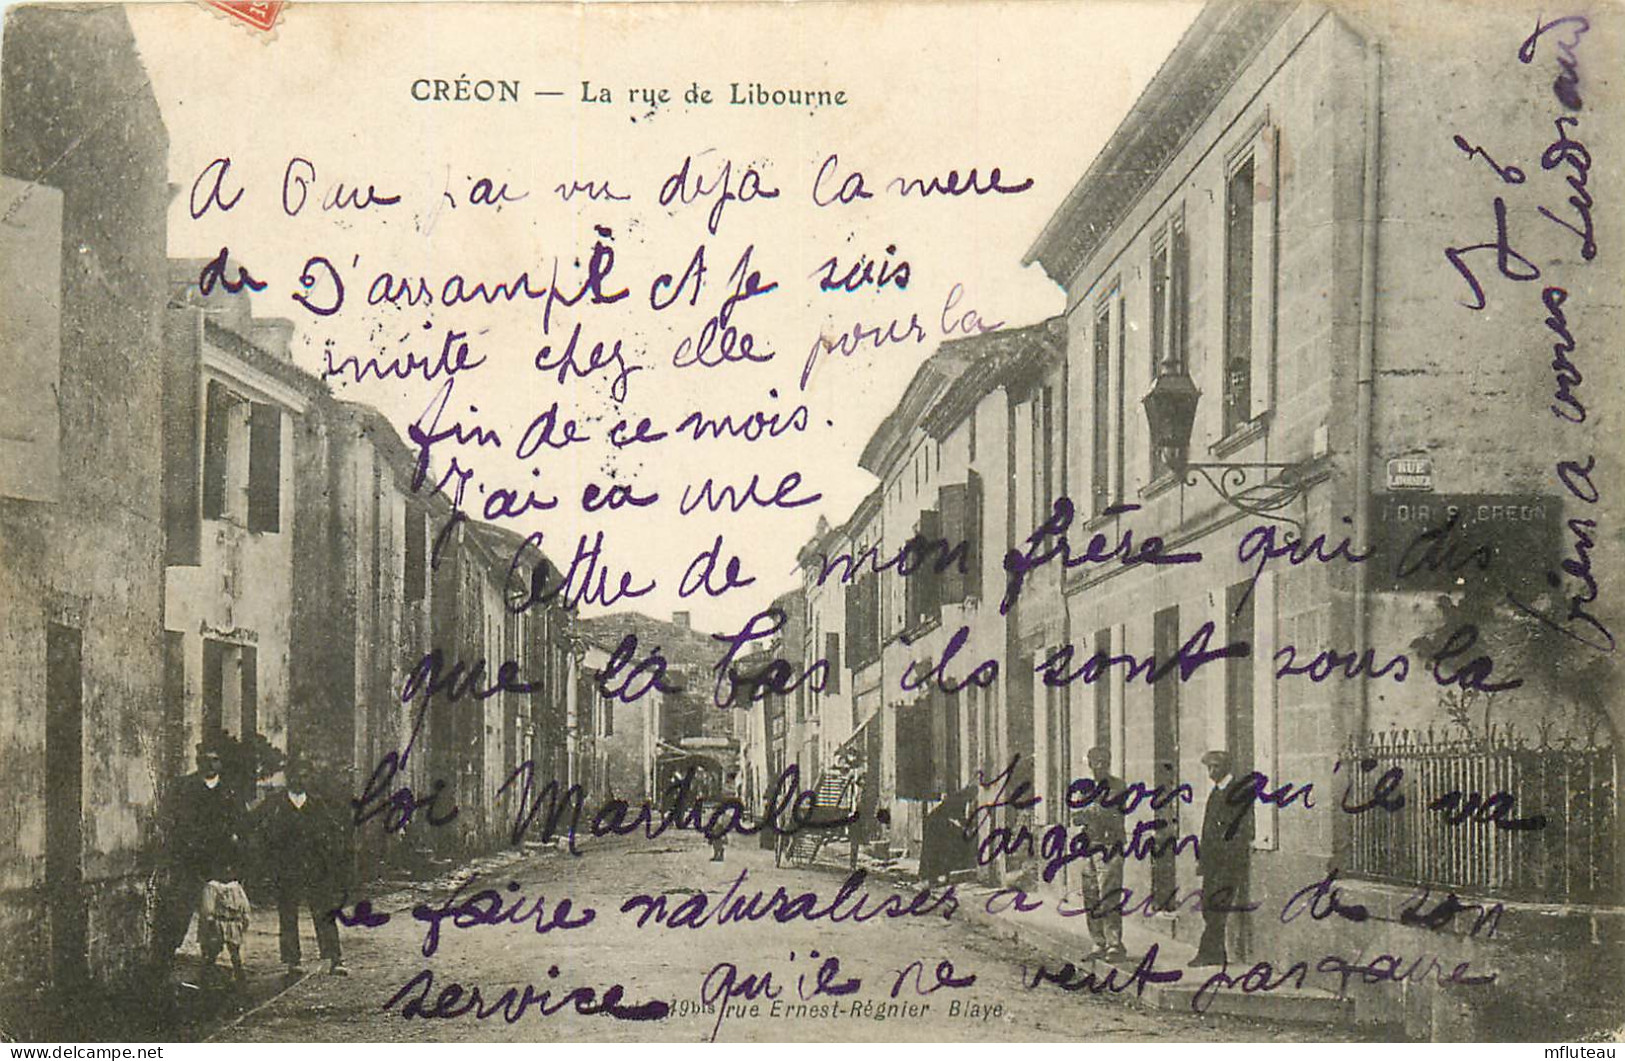 CRÉON — La rue de Libourne
A Pau j'ai vu déja la mere
de D'arsampi et je suis
invité chez elle pour la
fin de ce mois.
J'ai eu une
lettre de mon frère qui dis
que la bas ils sont sous la
loi Martiale. Je crois qu'il va
argentin
se faire naturaliser a cause de son
service qu'il ne veut pas faire
bien a vous
RUE
FOIRES CREON
49bis rue Ernest-Régnier Blaye
mfluteau